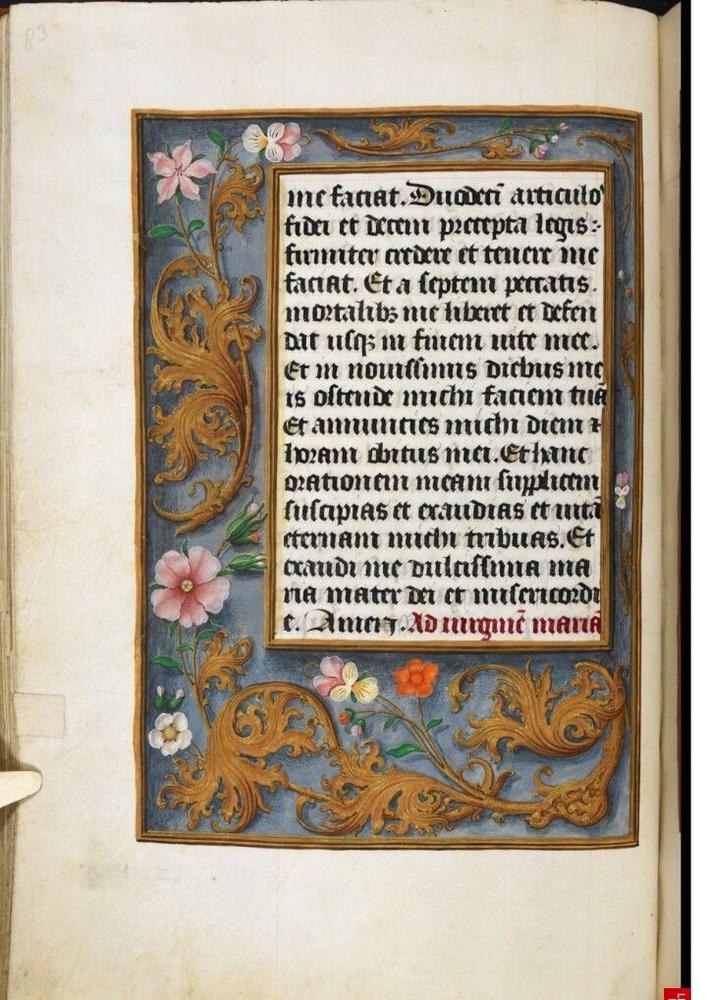 83
me faciat. Duodecī articulo
fidei et decem precepta legis:
firmiter credere et tenere me
faciat. Et a septem peccatis.
mortalibꝫ me liberet et defen
dat usqꝫ in finem uite mee.
Et in nouissimis diebus me
is ostende michi faciem tuā
Et annuncies michi diem ⁊
horam obitus mei. Et hanc
orationem meam supplicem
suscipias et exaudias et uitā
eternam michi tribuas. Et
exaudi me dulcissima ma
ria mater dei et misericordi
e. Amen. Ad uirginē mariā